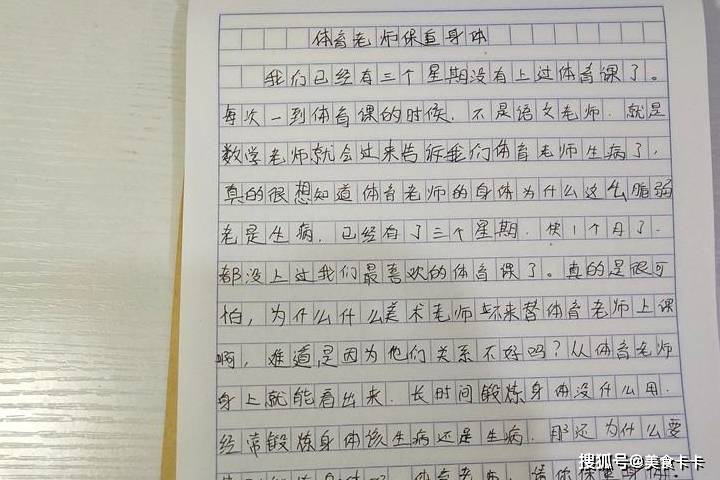 体育老师保重身体
我们已经有三个星期没有上过体育课了。
每次一到体育课的时候，不是语文老师，就是
数学老师就会过来告诉我们体育老师生病了，
真的很想知道体育老师的身体为什么这么脆弱
老是生病，已经有了三个星期，快1个月了，
都没上过我们最喜欢的体育课了。真的是很可
怕，为什么什么美术老师 来替体育老师上课
啊，难道是因为他们关系不好吗？从体育老师
身上就能看出来，长时间锻炼身体没什么用，
经常锻炼身体该生病还是生病，那还为什么要
体育老师，请你保重身体！
搜狐号@美食卡卡